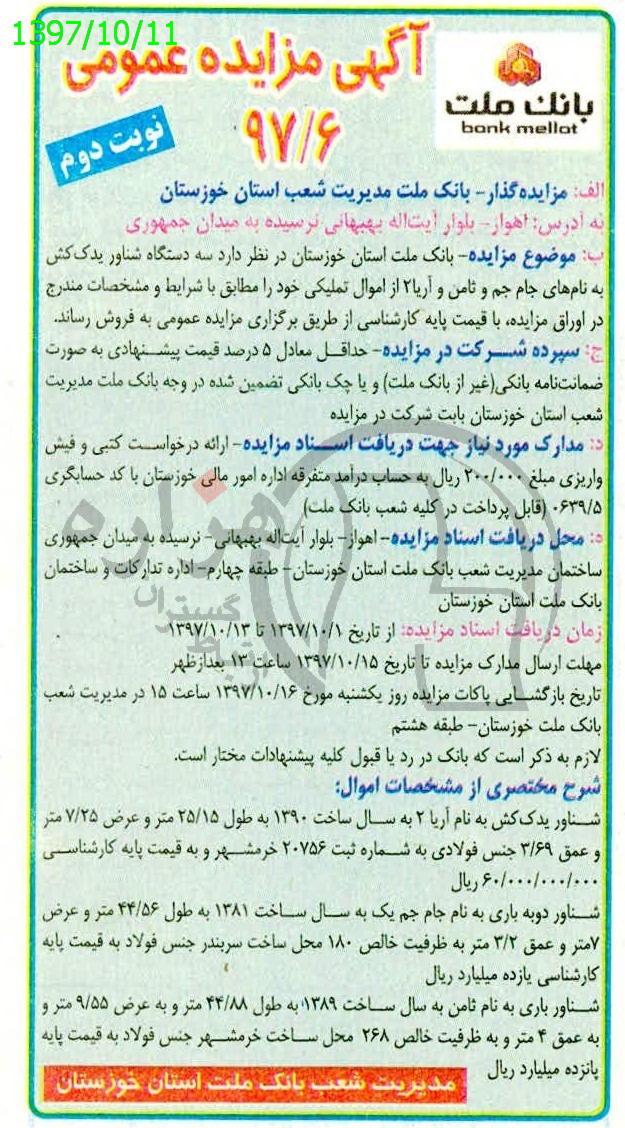 1397/10/11
بانک ملت
bank mellat
آگهی مزایده عمومی
۹۷/۶
نوبت دوم
الف: مزایده‌گذار- بانک ملت مدیریت شعب استان خوزستان
به آدرس: اهواز- بلوار آیت‌اله بهبهانی نرسیده به میدان جمهوری
ب: موضوع مزایده- بانک ملت استان خوزستان در نظر دارد سه دستگاه شناور یدک‌کش
به نام‌های جام جم و ثامن و آریا۲ از اموال تملیکی خود را مطابق با شرایط و مشخصات مندرج
در اوراق مزایده، با قیمت پایه کارشناسی از طریق برگزاری مزایده عمومی به فروش رساند.
ج: سپرده شرکت در مزایده- حداقل معادل ۵ درصد قیمت پیشنهادی به صورت
ضمانت‌نامه بانکی(غیر از بانک ملت) و یا چک بانکی تضمین شده در وجه بانک ملت مدیریت
شعب استان خوزستان بابت شرکت در مزایده
د: مدارک مورد نیاز جهت دریافت اسناد مزایده- ارائه درخواست کتبی و فیش
واریزی مبلغ ۲۰۰/۰۰۰ ریال به حساب درآمد متفرقه اداره امور مالی خوزستان با کد حسابگری
۰۶۳۹/۵ (قابل پرداخت در کلیه شعب بانک ملت)
ه: محل دریافت اسناد مزایده- اهواز- بلوار آیت‌اله بهبهانی- نرسیده به میدان جمهوری
ساختمان مدیریت شعب بانک ملت استان خوزستان- طبقه چهارم- اداره تدارکات و ساختمان
بانک ملت استان خوزستان
زمان دریافت اسناد مزایده: از تاریخ ۱۳۹۷/۱۰/۱ تا ۱۳۹۷/۱۰/۱۳
مهلت ارسال مدارک مزایده تا تاریخ ۱۳۹۷/۱۰/۱۵ ساعت ۱۳ بعدازظهر
تاریخ بازگشایی پاکات مزایده روز یکشنبه مورخ ۱۳۹۷/۱۰/۱۶ ساعت ۱۵ در مدیریت شعب
بانک ملت خوزستان- طبقه هشتم
لازم به ذکر است که بانک در رد یا قبول کلیه پیشنهادات مختار است.
شرح مختصری از مشخصات اموال:
شناور یدک‌کش به نام آریا ۲ به سال ساخت ۱۳۹۰ به طول ۲۵/۱۵ متر و عرض ۷/۲۵ متر
و عمق ۳/۶۹ جنس فولادی به شماره ثبت ۲۰۷۵۶ خرمشهر و به قیمت پایه کارشناسی
۶۰/۰۰۰/۰۰۰/۰۰۰ ریال
شناور دوبه باری به نام جام جم یک به سال ساخت ۱۳۸۱ به طول ۴۴/۵۶ متر و عرض
۷متر و عمق ۳/۲ متر به ظرفیت خالص ۱۸۰ محل ساخت سربندر جنس فولاد به قیمت پایه
کارشناسی یازده میلیارد ریال
شناور باری به نام ثامن به سال ساخت ۱۳۸۹ به طول ۴۴/۸۸ متر و به عرض ۹/۵۵ متر و
به عمق ۴ متر و به ظرفیت خالص ۲۶۸ محل ساخت خرمشهر جنس فولاد به قیمت پایه
پانزده میلیارد ریال
مدیریت شعب بانک ملت استان خوزستان
هزاره
گستران
ارتباط